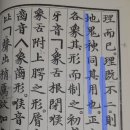 理而已理既不二則
地鬼神同其用也正
各象其形而制之初
牙音ㄱ象舌根閉喉
象舌附上腭之形
ㅅ象齒形喉音
ㄱ聲出稍厲故加